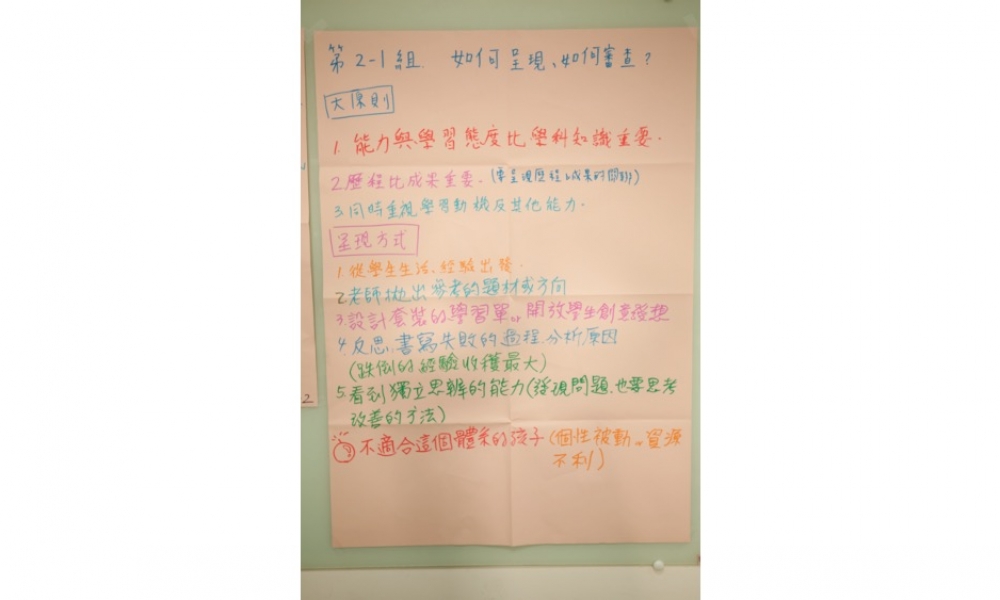 第2-1組. 如何呈現、如何審查?
大原則
1. 能力與學習態度比學科知識重要.
2.歷程比成果重要. (要呈現歷程&成果的關聯)
3.同時重視學習動機及其他能力.
呈現方式
1.從學生生活、經驗出發.
2.老師拋出參考的題材或方向
3.設計套裝的學習單.. 開放學生創意發想
4.反思.書寫失敗的過程.分析原因
(跌倒的經驗收穫最大)
5.看到獨立思辨的能力(發現問題.也要思考
改善的方法)
不適合這個體系的孩子(個性被動..資源
不利)
2